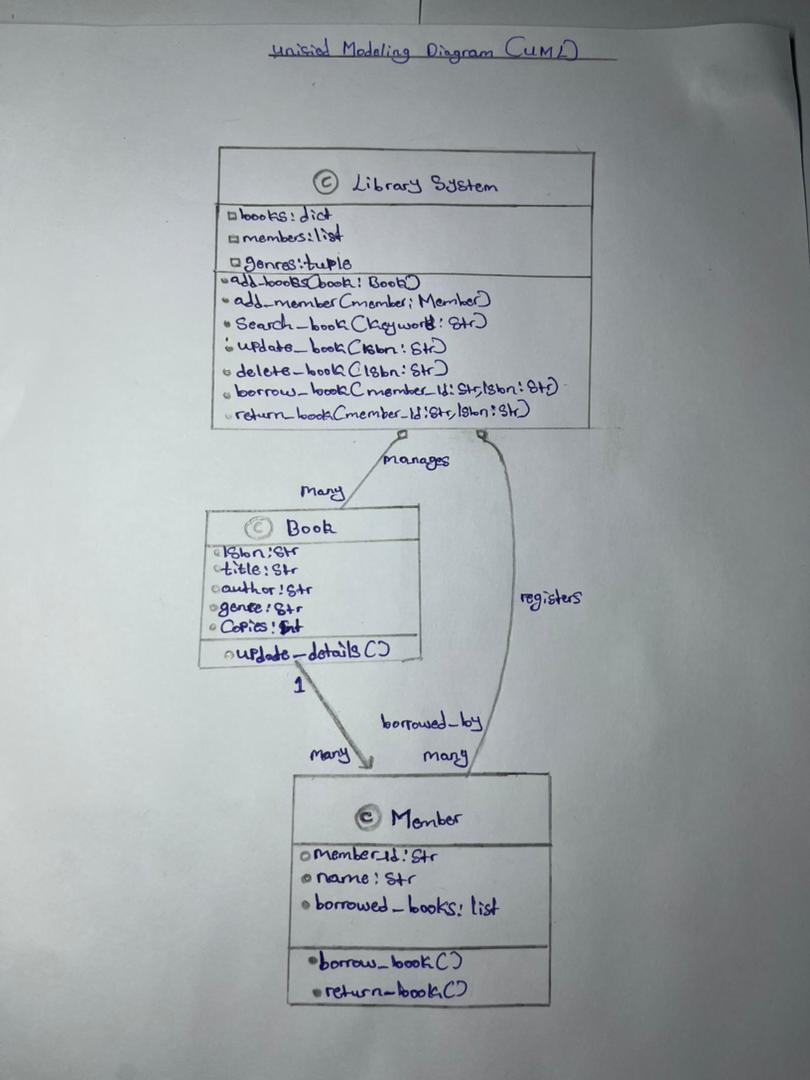 Unisied Modeling Diagram (UML)
© Library System
books: dict
members: list
genres: tuple
add_books(book: Book)
add_member(member: Member)
Search_book(Keyword: Str)
update_book(Isbn: Str)
delete_book(Isbn: Str)
borrow_book(member_Id: Str, Isbn: Str)
return_book(member_Id: Str, Isbn: Str)
manages
many
© Book
Isbn: Str
title: Str
author: Str
genre: Str
Copies: Int
update_details()
registers
1
borrowed_by
many
many
© Member
member_id: Str
name: Str
borrowed_books: list
borrow_book()
return_book()